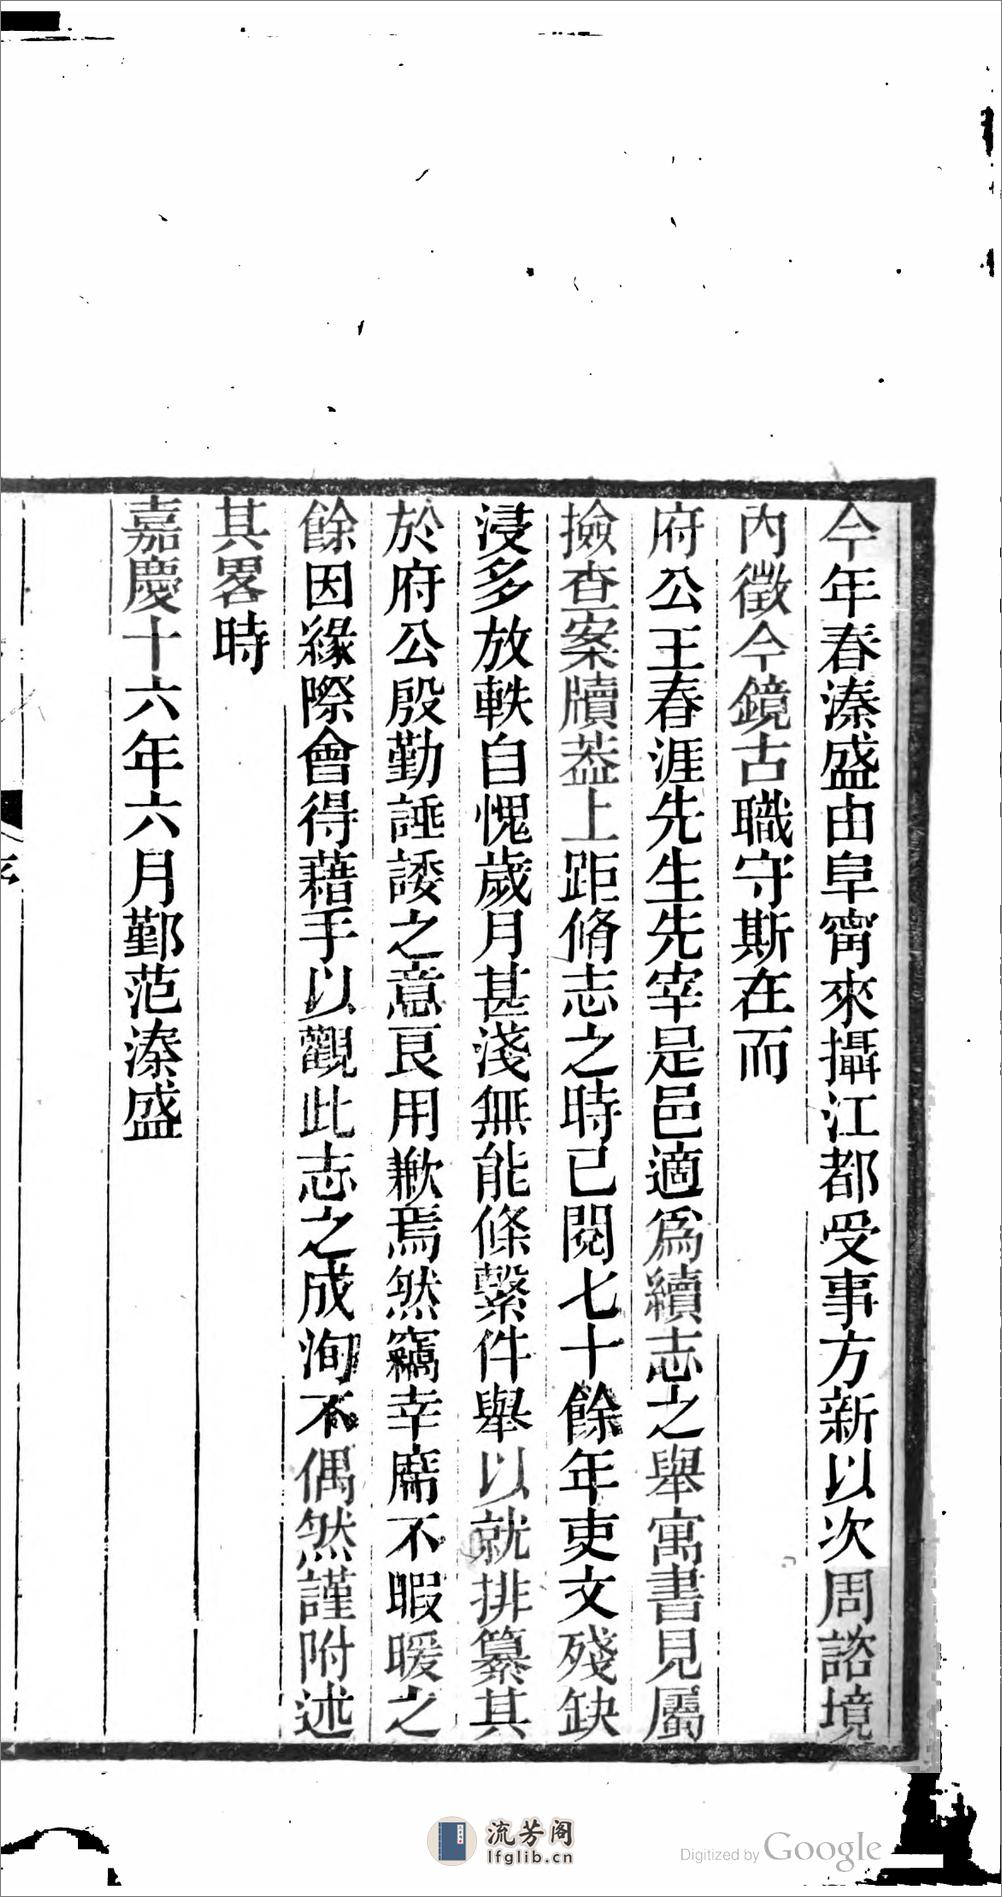 今年春溱盛由阜甯來攝江都受事方新以次周諮境
內徵今鏡古職守斯在而
府公王春涯先生先宰是邑適爲續志之舉寓書見屬
撿查案牘葢上距脩志之時已閱七十餘年吏文殘缺
浸多放軼自愧歲月甚淺無能條繫件舉以就排纂其
於府公殷勤諈諉之意良用歉焉然竊幸席不暇暖之
餘因緣際會得藉手以觀此志之成洵不偶然謹附述
其畧時
嘉慶十六年六月鄞范溱盛
序
流芳阁
lfglib.cn
Digitized by Google